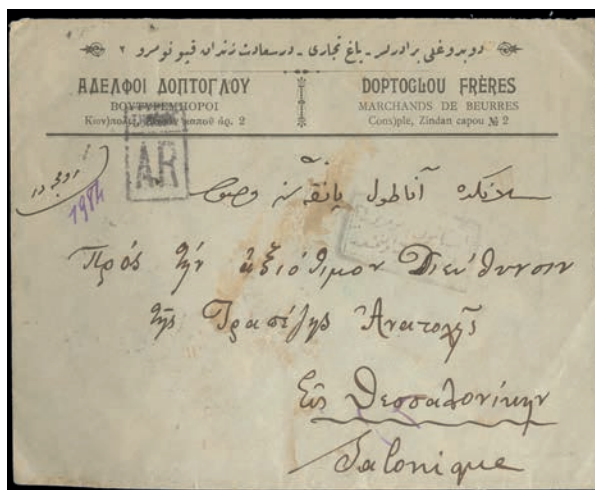 دوپدوغلی برادرلر - یاغ تجاری - درسعادت زندان قپو نومرو ٢
ΑΔΕΛΦΟΙ ΔΟΠΤΟΓΛΟΥ
ΒΟΥΤΥΡΕΜΠΟΡΟΙ
Κων)πολις, καπποῦ ἀρ. 2
DOPTOGLOU FRÈRES
MARCHANDS DE BEURRES
Cons)ple, Zindan capou № 2
AR
1984
سلانیکده آناطول بانقه سنه
Πρός τήν ἀξιότιμον Διεύθυνσιν
τῆς Τραπέζης Ἀνατολῆς
Εἰς Θεσσαλονίκην
Salonique